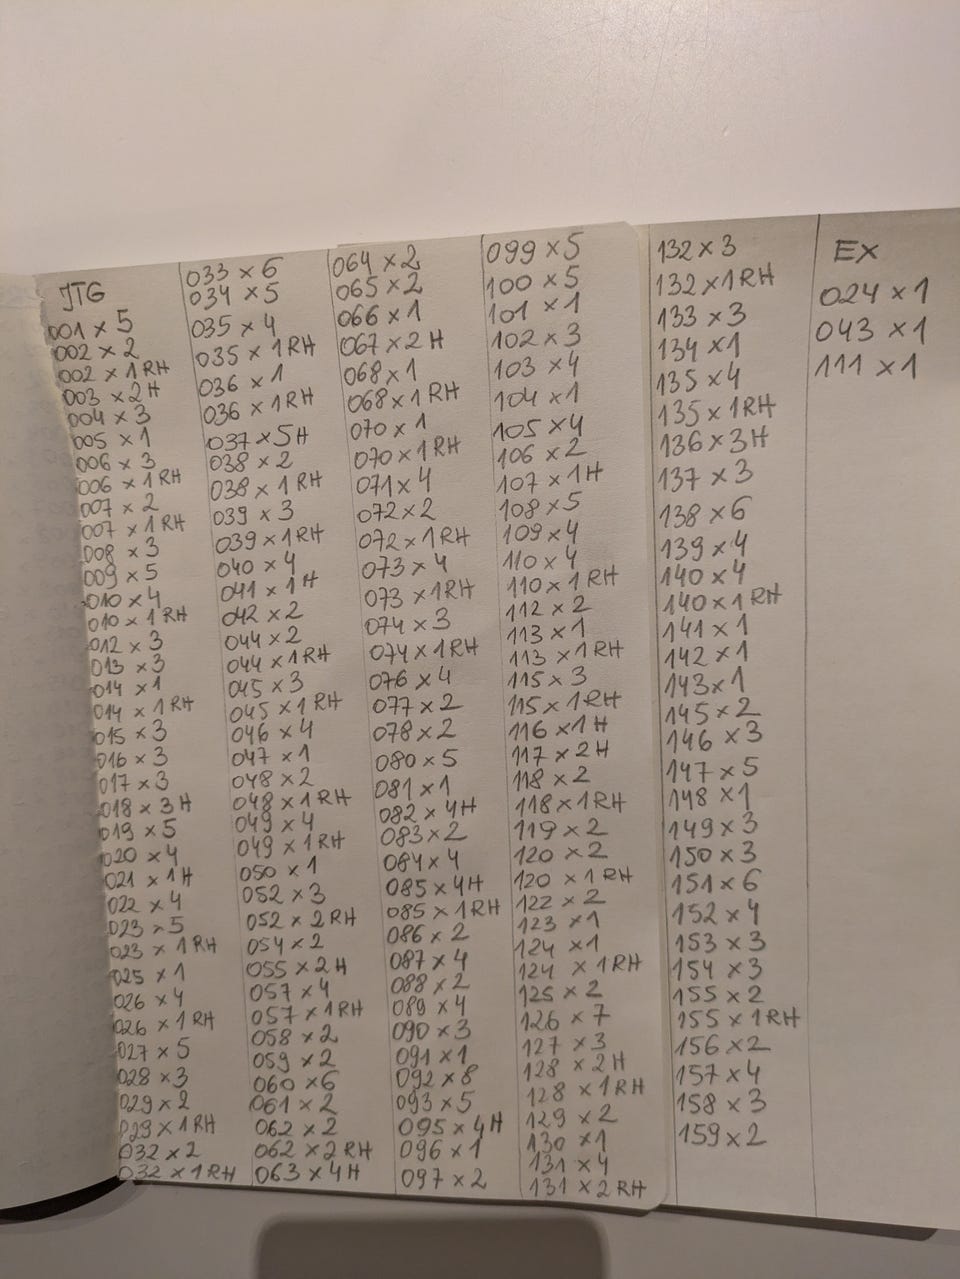 JTG
001 × 5
002 × 2
002 × 1 RH
003 × 2 H
004 × 3
005 × 1
006 × 3
006 × 1 RH
007 × 2
007 × 1 RH
008 × 3
009 × 5
010 × 4
010 × 1 RH
012 × 3
013 × 3
014 × 1
014 × 1 RH
015 × 3
016 × 3
017 × 3
018 × 3 H
019 × 5
020 × 4
021 × 1 H
022 × 4
023 × 5
023 × 1 RH
025 × 1
026 × 4
026 × 1 RH
027 × 5
028 × 3
029 × 2
029 × 1 RH
032 × 2
032 × 1 RH
033 × 6
034 × 5
035 × 4
035 × 1 RH
036 × 1
036 × 1 RH
037 × 5 H
038 × 2
038 × 1 RH
039 × 3
039 × 1 RH
040 × 4
041 × 1 H
042 × 2
044 × 2
044 × 1 RH
045 × 3
045 × 1 RH
046 × 4
047 × 1
048 × 2
048 × 1 RH
049 × 4
049 × 1 RH
050 × 1
052 × 3
052 × 2 RH
054 × 2
055 × 2 H
057 × 4
057 × 1 RH
058 × 2
059 × 2
060 × 6
061 × 2
062 × 2
062 × 2 RH
063 × 4 H
064 × 2
065 × 2
066 × 1
067 × 2 H
068 × 1
068 × 1 RH
070 × 1
070 × 1 RH
071 × 4
072 × 2
072 × 1 RH
073 × 4
073 × 1 RH
074 × 3
074 × 1 RH
076 × 4
077 × 2
078 × 2
080 × 5
081 × 1
082 × 4 H
083 × 2
084 × 4
085 × 4 H
085 × 1 RH
086 × 2
087 × 4
088 × 2
089 × 4
090 × 3
091 × 1
092 × 8
093 × 5
095 × 4 H
096 × 1
097 × 2
099 × 5
100 × 5
101 × 1
102 × 3
103 × 4
104 × 1
105 × 4
106 × 2
107 × 1 H
108 × 5
109 × 4
110 × 4
110 × 1 RH
112 × 2
113 × 1
113 × 1 RH
115 × 3
115 × 1 RH
116 × 1 H
117 × 2 H
118 × 2
118 × 1 RH
119 × 2
120 × 2
120 × 1 RH
122 × 2
123 × 1
124 × 1
124 × 1 RH
125 × 2
126 × 7
127 × 3
128 × 2 H
128 × 1 RH
129 × 2
130 × 1
131 × 4
131 × 2 RH
132 × 3
132 × 1 RH
133 × 3
134 × 1
135 × 4
135 × 1 RH
136 × 3 H
137 × 3
138 × 6
139 × 4
140 × 4
140 × 1 RH
141 × 1
142 × 1
143 × 1
145 × 2
146 × 3
147 × 5
148 × 1
149 × 3
150 × 3
151 × 6
152 × 4
153 × 3
154 × 3
155 × 2
155 × 1 RH
156 × 2
157 × 4
158 × 3
159 × 2
EX
024 × 1
043 × 1
111 × 1